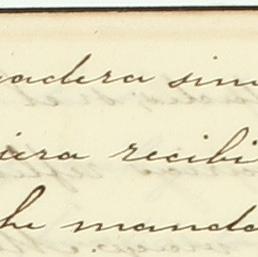 adera sin
iera recibi
che manda